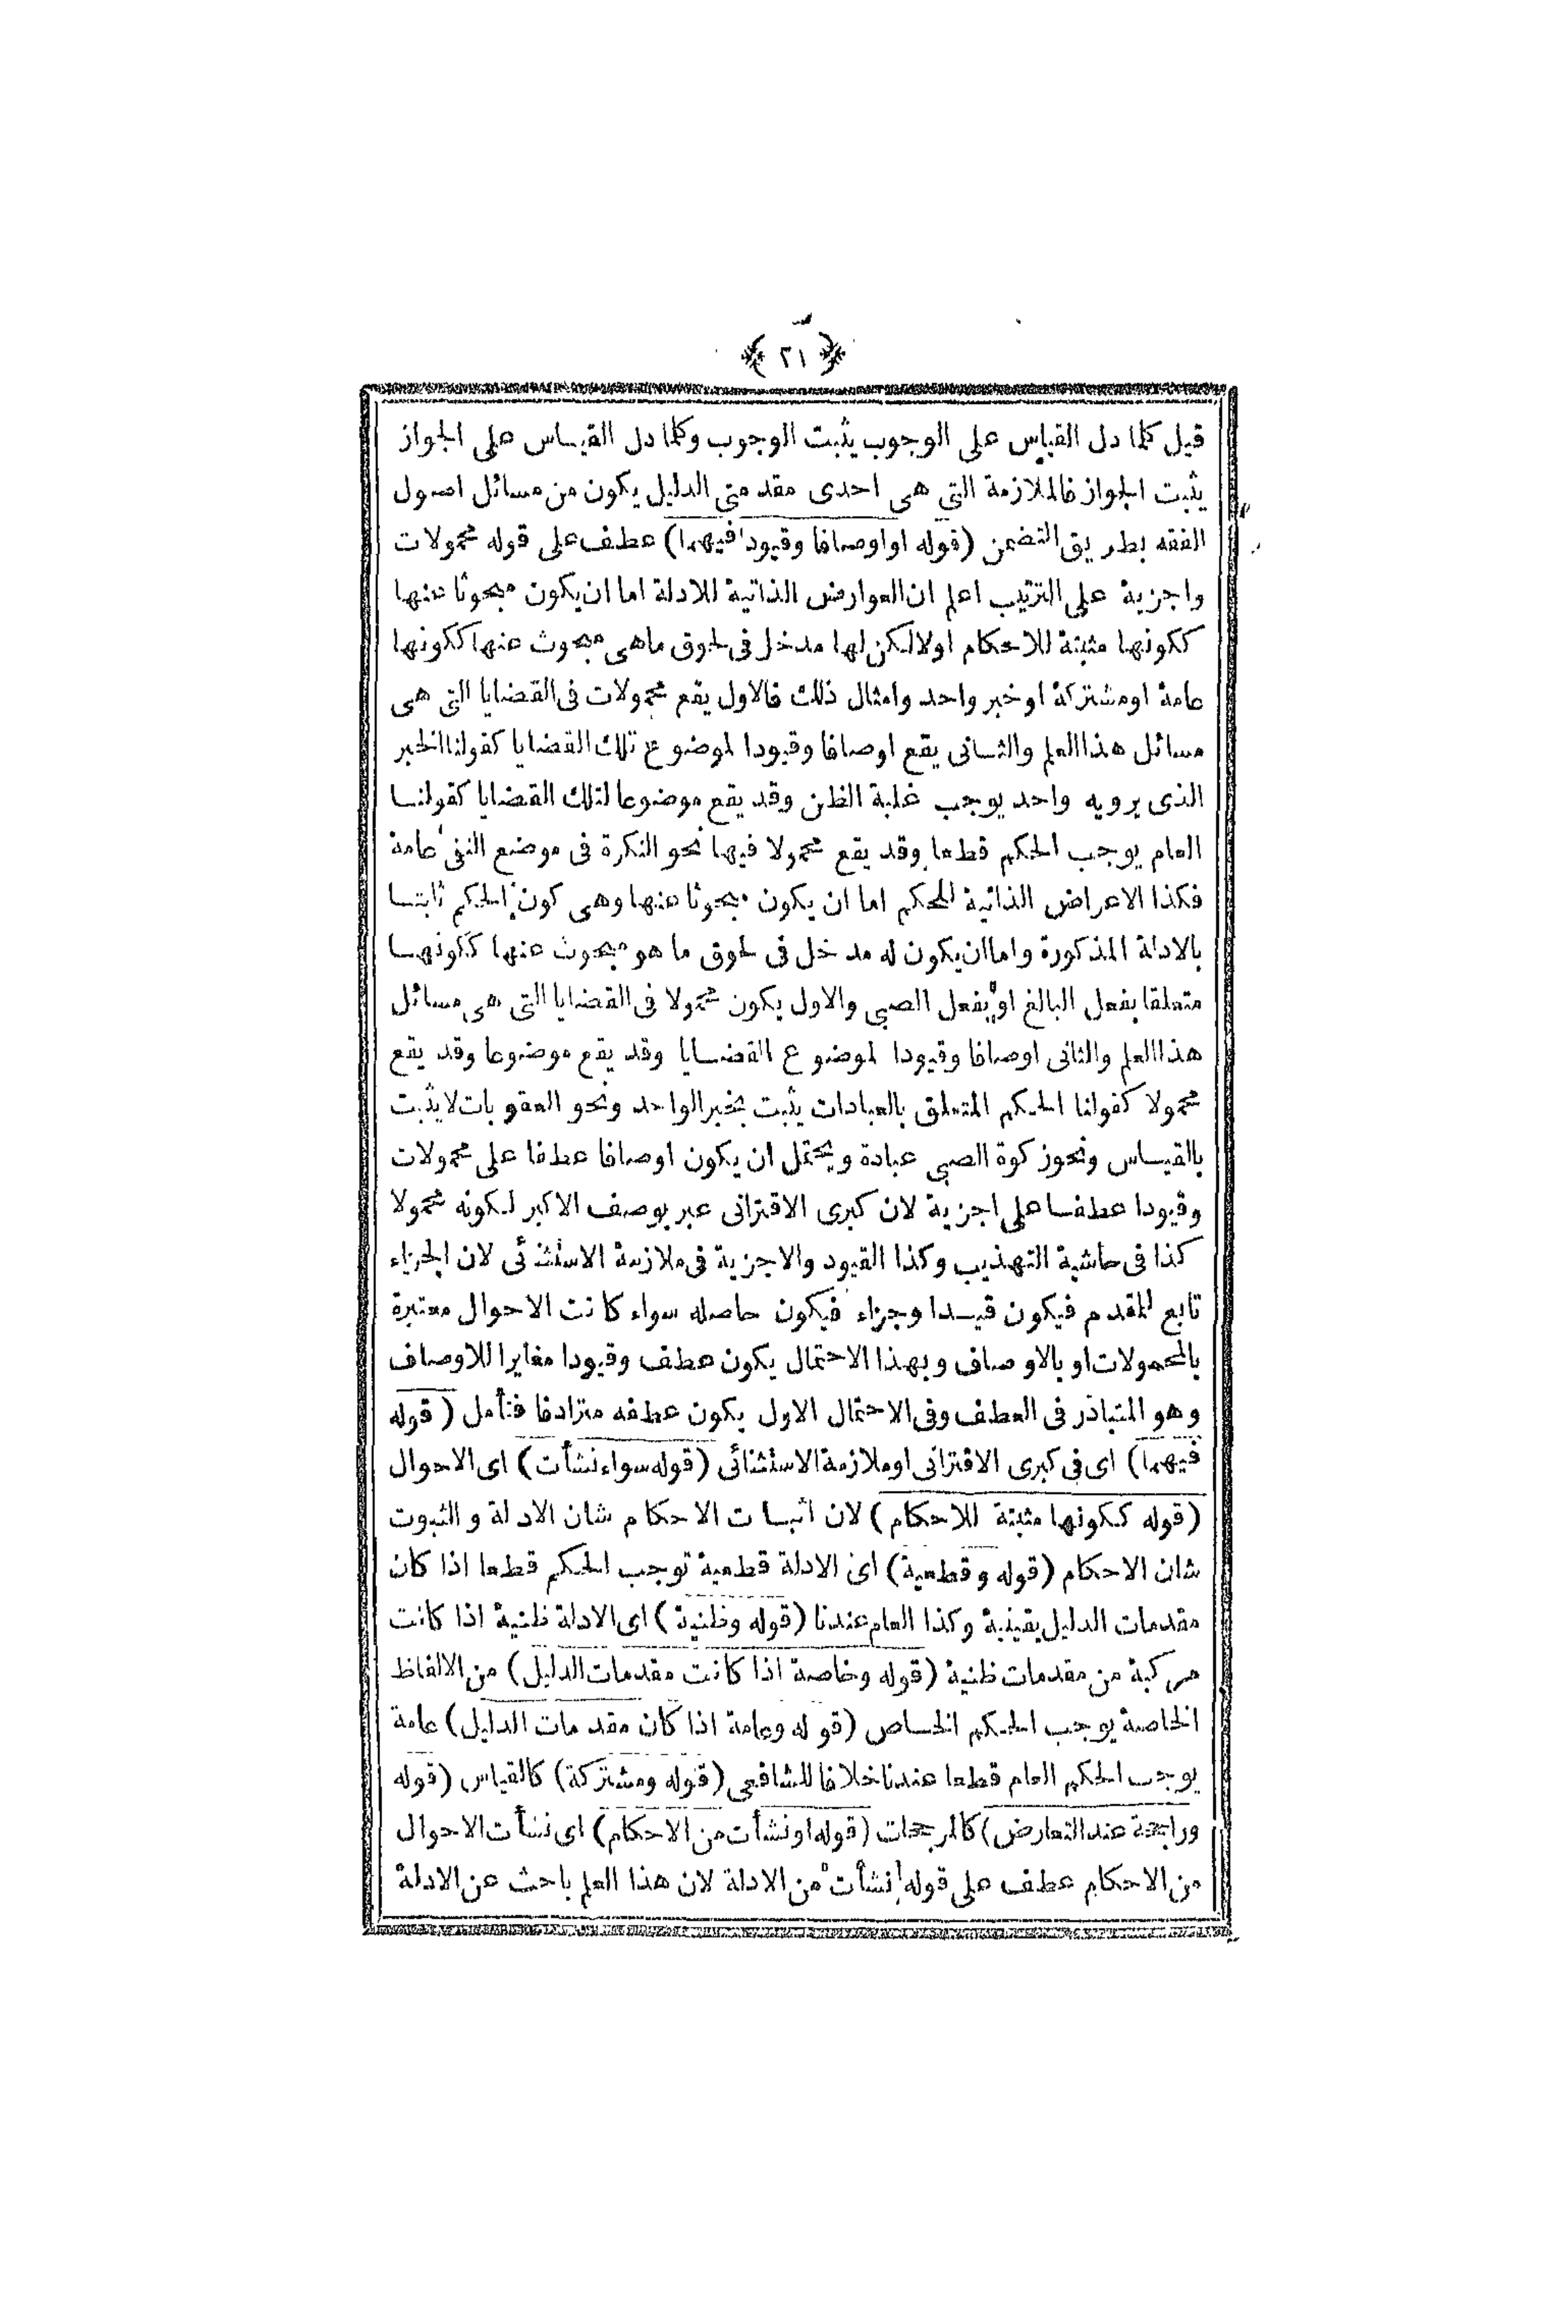 ﴿ ٢١ ﴾
قيل كلما دل القياس على الوجوب يثبت الوجوب وكلما دل القياس على الجواز
يثبت الجواز فالملازمة التى هى احدى مقدمتى الدليل يكون من مسائل اصول
الفقه بطريق التضمن (قوله او اوصافا وقيودا فيهما) عطف على قوله محمولات
واجزية على الترتيب اعلم ان العوارض الذاتية للادلة اما ان يكون مبحوثا عنها
ككونها مثبتة للاحكام اولا لكن لها مدخل فى لحوق ماهى مبحوث عنها ككونها
عامة او مشتركة او خبر واحد وامثال ذلك فالاول يقع محمولات فى القضايا التى هى
مسائل هذا العلم والثانى يقع اوصافا وقيودا لموضوع تلك القضايا كقولنا الخبر
الذى يرويه واحد يوجب غلبة الظن وقد يقع موضوعا لتلك القضايا كقولنا
العام يوجب الحكم قطعا وقد يقع محمولا فيها نحو النكرة فى موضع النفى عامة
فكذا الاعراض الذاتية للحكم اما ان يكون مبحوثا عنها وهى كون الحكم ثابتا
بالادلة المذكورة واما ان يكون له مدخل فى لحوق ما هو مبحوث عنها ككونها
متعلقا بفعل البالغ او بفعل الصبى والاول يكون محمولا فى القضايا التى هى مسائل
هذا العلم والثانى اوصافا وقيودا لموضوع القضايا وقد يقع موضوعا وقد يقع
محمولا كقولنا الحكم المتعلق بالعبادات يثبت بخبر الواحد ونحو العقوبات لا يثبت
بالقياس ونحو زكوة الصبى عبادة ويحتمل ان يكون اوصافا عطفا على محمولات
وقيودا عطفا على اجزية لان كبرى الاقترانى عبر بوصف الاكبر لكونه محمولا
كذا فى حاشية التهذيب وكذا القيود والاجزية فى ملازمة الاستثنائى لان الجزاء
تابع للمقدم فيكون قيدا وجزاء فيكون حاصله سواء كانت الاحوال معتبرة
بالمحمولات او بالاوصاف وبهذا الاحتمال يكون عطف وقيودا مغايرا للاوصاف
وهو المتبادر فى العطف وفى الاحتمال الاول يكون عطفه مترادفا فتأمل (قوله
فيهما) اى فى كبرى الاقترانى او ملازمة الاستثنائى (قوله سواء نشأت) اى الاحوال
(قوله ككونها مثبتة للاحكام) لان اثبات الاحكام شان الادلة والثبوت
شان الاحكام (قوله وقطعية) اى الادلة قطعية توجب الحكم قطعا اذا كان
مقدمات الدليل يقينية وكذا العام عندنا (قوله وظنية) اى الادلة ظنية اذا كانت
مركبة من مقدمات ظنية (قوله وخاصة اذا كانت مقدمات الدليل) من الالفاظ
الخاصة يوجب الحكم الخاص (قوله وعامة اذا كان مقدمات الدليل) عامة
يوجب الحكم العام قطعا عندنا خلافا للشافعى (قوله ومشتركة) كالقياس (قوله
وراجحة عند التعارض) كالمرجحات (قوله او نشأت من الاحكام) اى نشأت الاحوال
من الاحكام عطف على قوله نشأت من الادلة لان هذا العلم باحث عن الادلة